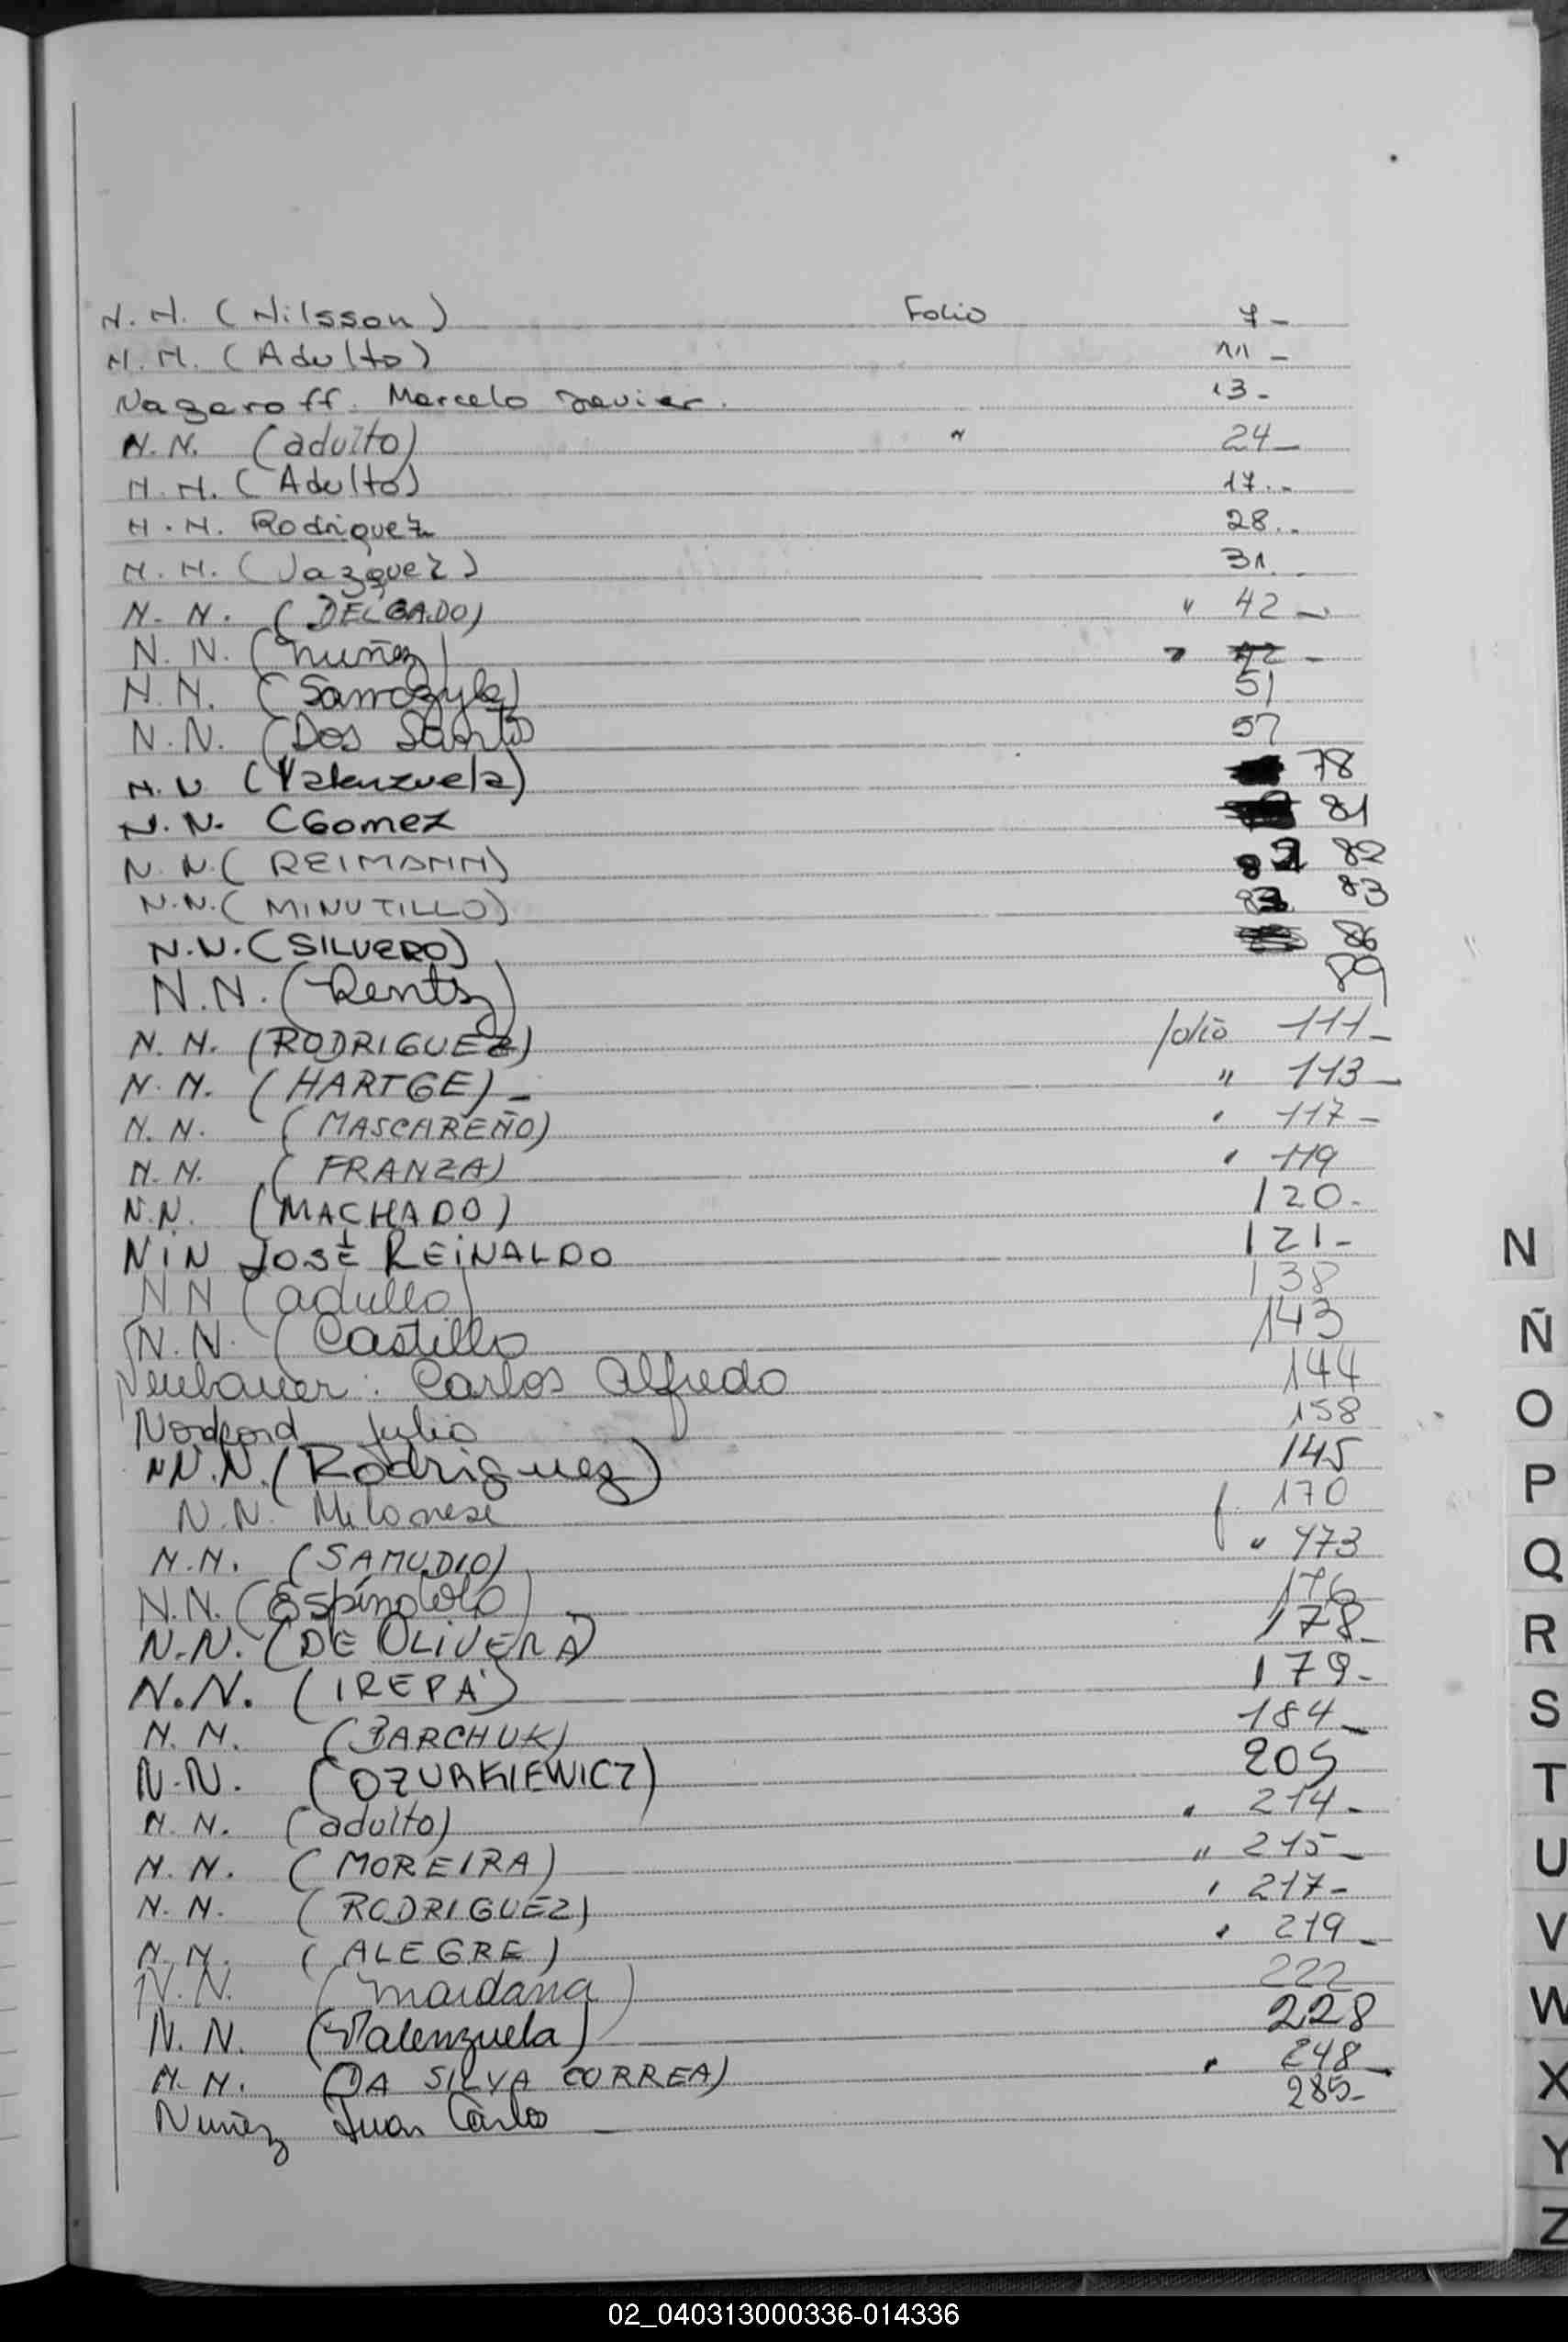 N.N. (Nilsson) Folio 7-
N.N. (Adulto) 11-
Nagaroff. Marcelo Javier. 13-
N.N. (adulto) " 24-
N.N. (Adulto) 17.-
N.N. Rodriguez 28.-
N.N. (Vazquez) 31.
N.N. (DELGADO) " 42-
N.N. (Nuñez) " 42-
N.N. 51
N.N. (Dos Santos 57
N.N (Valenzuela) 78
N.N. (Gomez 81
N.N. (REIMANN) 82 82
N.N. (MINUTILLO) 83 83
N.N. (SILVERO) 86
N.N. 89
N.N. (RODRIGUEZ) folio 111-
N.N. (HARTGE)- " 113-
N.N. (MASCAREÑO) " 117-
N.N. (FRANZA) " 119
N.N. (MACHADO) 120-
NIN JOSÉ REINALDO 121-
NN (adulto) 138
N.N. (Castillo 143
Neubauer: Carlos Alfredo 144
Julio 158
N.N. (Rodriguez) 145
N.N. Milanese f. 170
N.N. (SAMUDIO) " 173
N.N. (Espíndola) 176
N.N. (DE OLIVERA) 178-
N.N. (IREPA) 179-
N.N. (BARCHUK) 184-
N.N. (OZURKIEWICZ) 205
N.N. (adulto) " 214-
N.N. (MOREIRA) " 215-
N.N. (RODRIGUEZ) " 217-
N.N. (ALEGRE) " 219-
N.N. (Maidana) 222
N.N. (Valenzuela) 228
N.N. (DA SILVA CORREA) " 248-
Nuñez Juan Carlos 285-
N
Ñ
O
P
Q
R
S
T
U
V
W
X
Y
Z
02_040313000336-014336